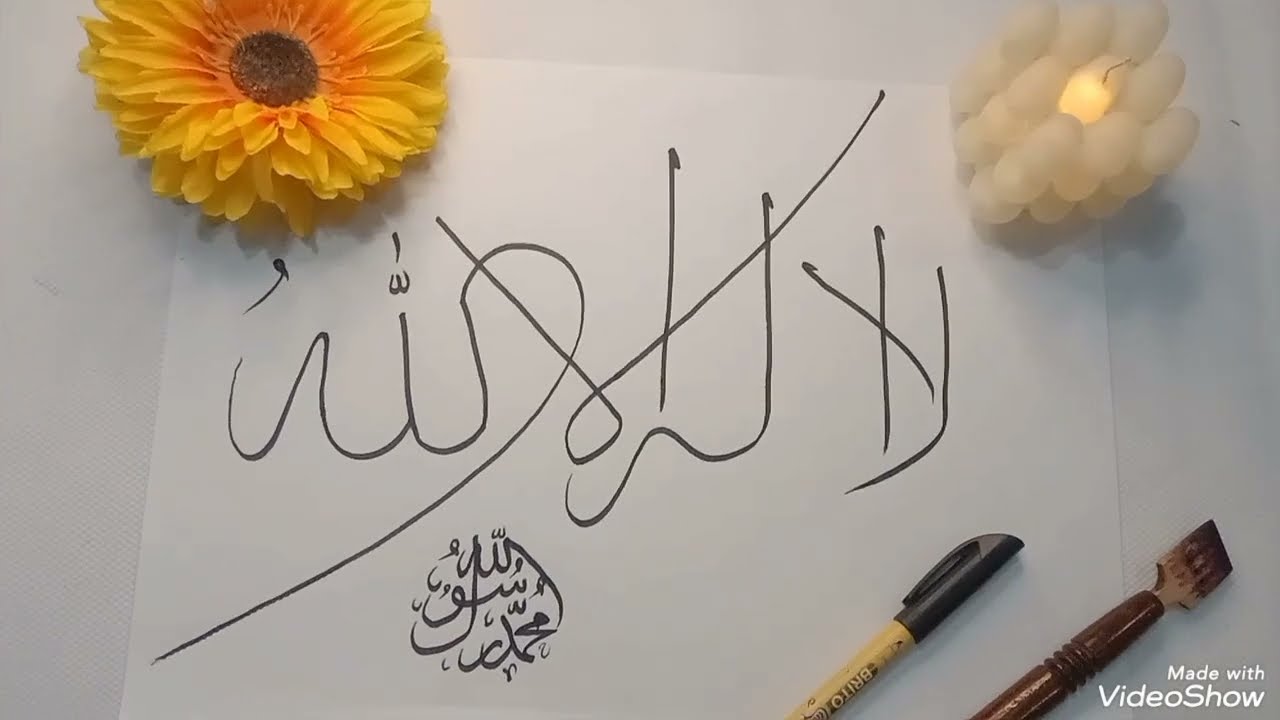 لا إله إلا اللهُ
محمد رسول الله
BRITO
Made with
VideoShow